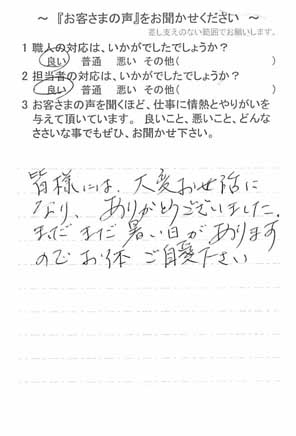 ～『お客さまの声』をお聞かせください ～
差し支えのない範囲でお願いします。
1 職人の対応は、いかがでしたでしょうか?
良い 普通 悪い その他( )
2 担当者の対応は、いかがでしたでしょうか?
良い 普通 悪い その他( )
3 お客さまの声を聞くほど、仕事に情熱とやりがいを
与えて頂いています。 良いこと、悪いこと、どんな
ささいな事でもぜひ、お聞かせ下さい。
皆様には、大変お世話に
なり、ありがとうございました。
まだまだ暑い日があります
のでお体ご自愛下さい